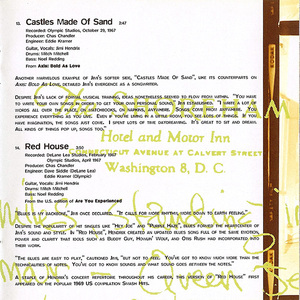 12. Castles Made Of Sand 2:47
Recorded: Olympic Studios, October 29, 1967
Producer: Chas Chandler
Engineer: Eddie Kramer
Guitar, Vocals: Jimi Hendrix
Drums: Mitch Mitchell
Bass: Noel Redding
From Axis: Bold As Love
Another marvelous example of Jimi's softer side, "Castles Made Of Sand", like its counterparts on
Axis: Bold As Love, detailed Jimi's emergence as a songwriter.
Despite Jimi's lack of formal musical training, ideas nonetheless seemed to flow from within. "You have
to write your own songs in order to get your own personal sound," Jimi established. "I write a lot of
words all over the place, on matchbooks, on napkins, anywhere. Songs come from anywhere. You
experience everything as you live. Even if you're living in a little room, you see lots of things. If you
have imagination, the songs just come. I spend lots of time daydreaming. It's great to sit and dream.
All kinds of things pop up, songs too."
Hotel and Motor Inn
Connecticut Avenue at Calvert Street
Washington 8, D. C.
13. Red House 3:50
Recorded: DeLane Lea Studios, February 1967
Olympic Studios, April 1967
Producer: Chas Chandler
Engineer: Dave Siddle (DeLane Lea)
Eddie Kramer (Olympic)
Guitar, Vocals: Jimi Hendrix
Drums: Mitch Mitchell
Bass: Noel Redding
From the U.S. edition of Are You Experienced
"Blues is my backbone," Jimi once declared. "It calls for more rhythm, more down to earth feeling."
Despite the popularity of hit singles like "Hey Joe" and "Purple Haze", blues formed the underpinning of
Jimi's sound and style. In "Red House", Hendrix created an original blues song rich with the same emotion,
power and clarity that idols such as Buddy Guy, Howlin' Wolf, and Otis Rush had incorporated into
their work.
"The blues are easy to play," cautioned Jimi, "but not to feel. You've got to know much more than the
technicalities of notes. You've got to know sounds and what sound goes between the notes."
A staple of Hendrix's concert repertoire throughout his career, this version of "Red House" first
appeared on the popular 1969 US compilation Smash Hits.